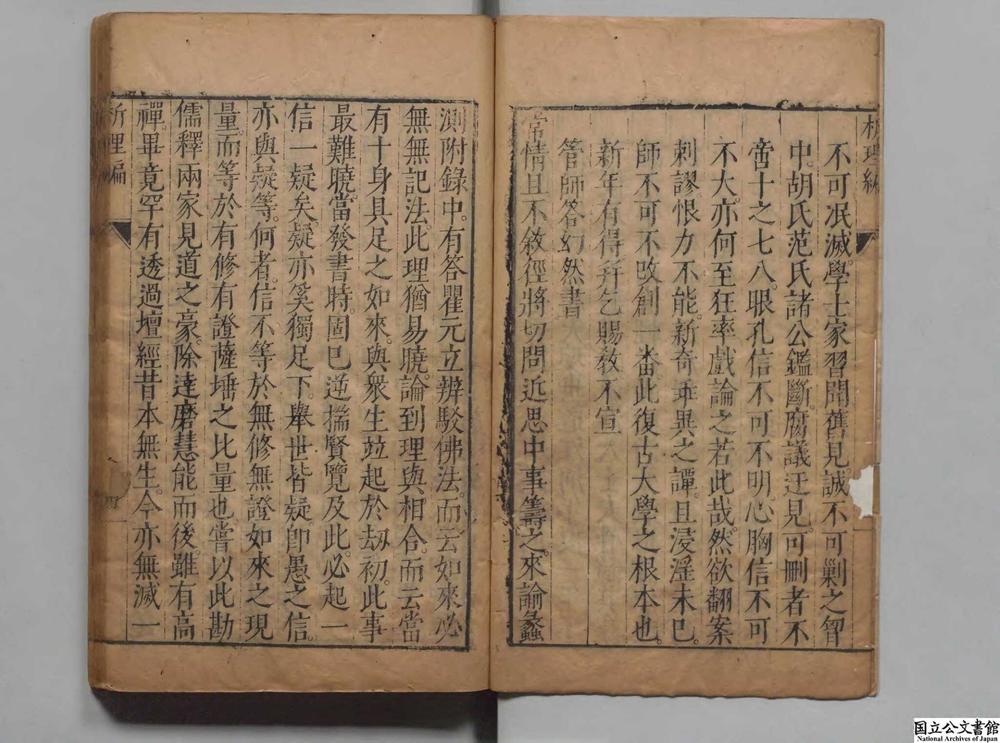 不可泯滅學士家習聞舊見誠不可剿之智
中胡氏范氏諸公鑑斷腐議迂見可刪者不
啻十之七八眼孔信不可不明心胸信不可
不大亦何至狂率戲論之若此哉然欲翻案
刺謬恨力不能新奇乖異之譚且浸淫未已
師不可不改創一番此復古大學之根本也
新年有得幷乞賜教不宣
管師答幻然書
常情且不敘徑將切問近思中事籌之來論蠡
測附錄中有答瞿元立辨駁佛法而云如來必
無無記法此理猶易曉論到理與相合而云當
有十身具足之如來與衆生竝起於劫初此事
最難曉當發書時固已逆揣賢覽及此必起一
信一疑矣疑亦奚獨足下舉世皆疑卽愚之信
亦與疑等何者信不等於無修無證如來之現
量而等於有修有證薩埵之比量也嘗以此勘
儒釋兩家見道之豪除達磨慧能而後雖有高
禪畢竟罕有透過壇經昔本無生今亦無滅一
析理編
国立公文書館
National Archives of Japan